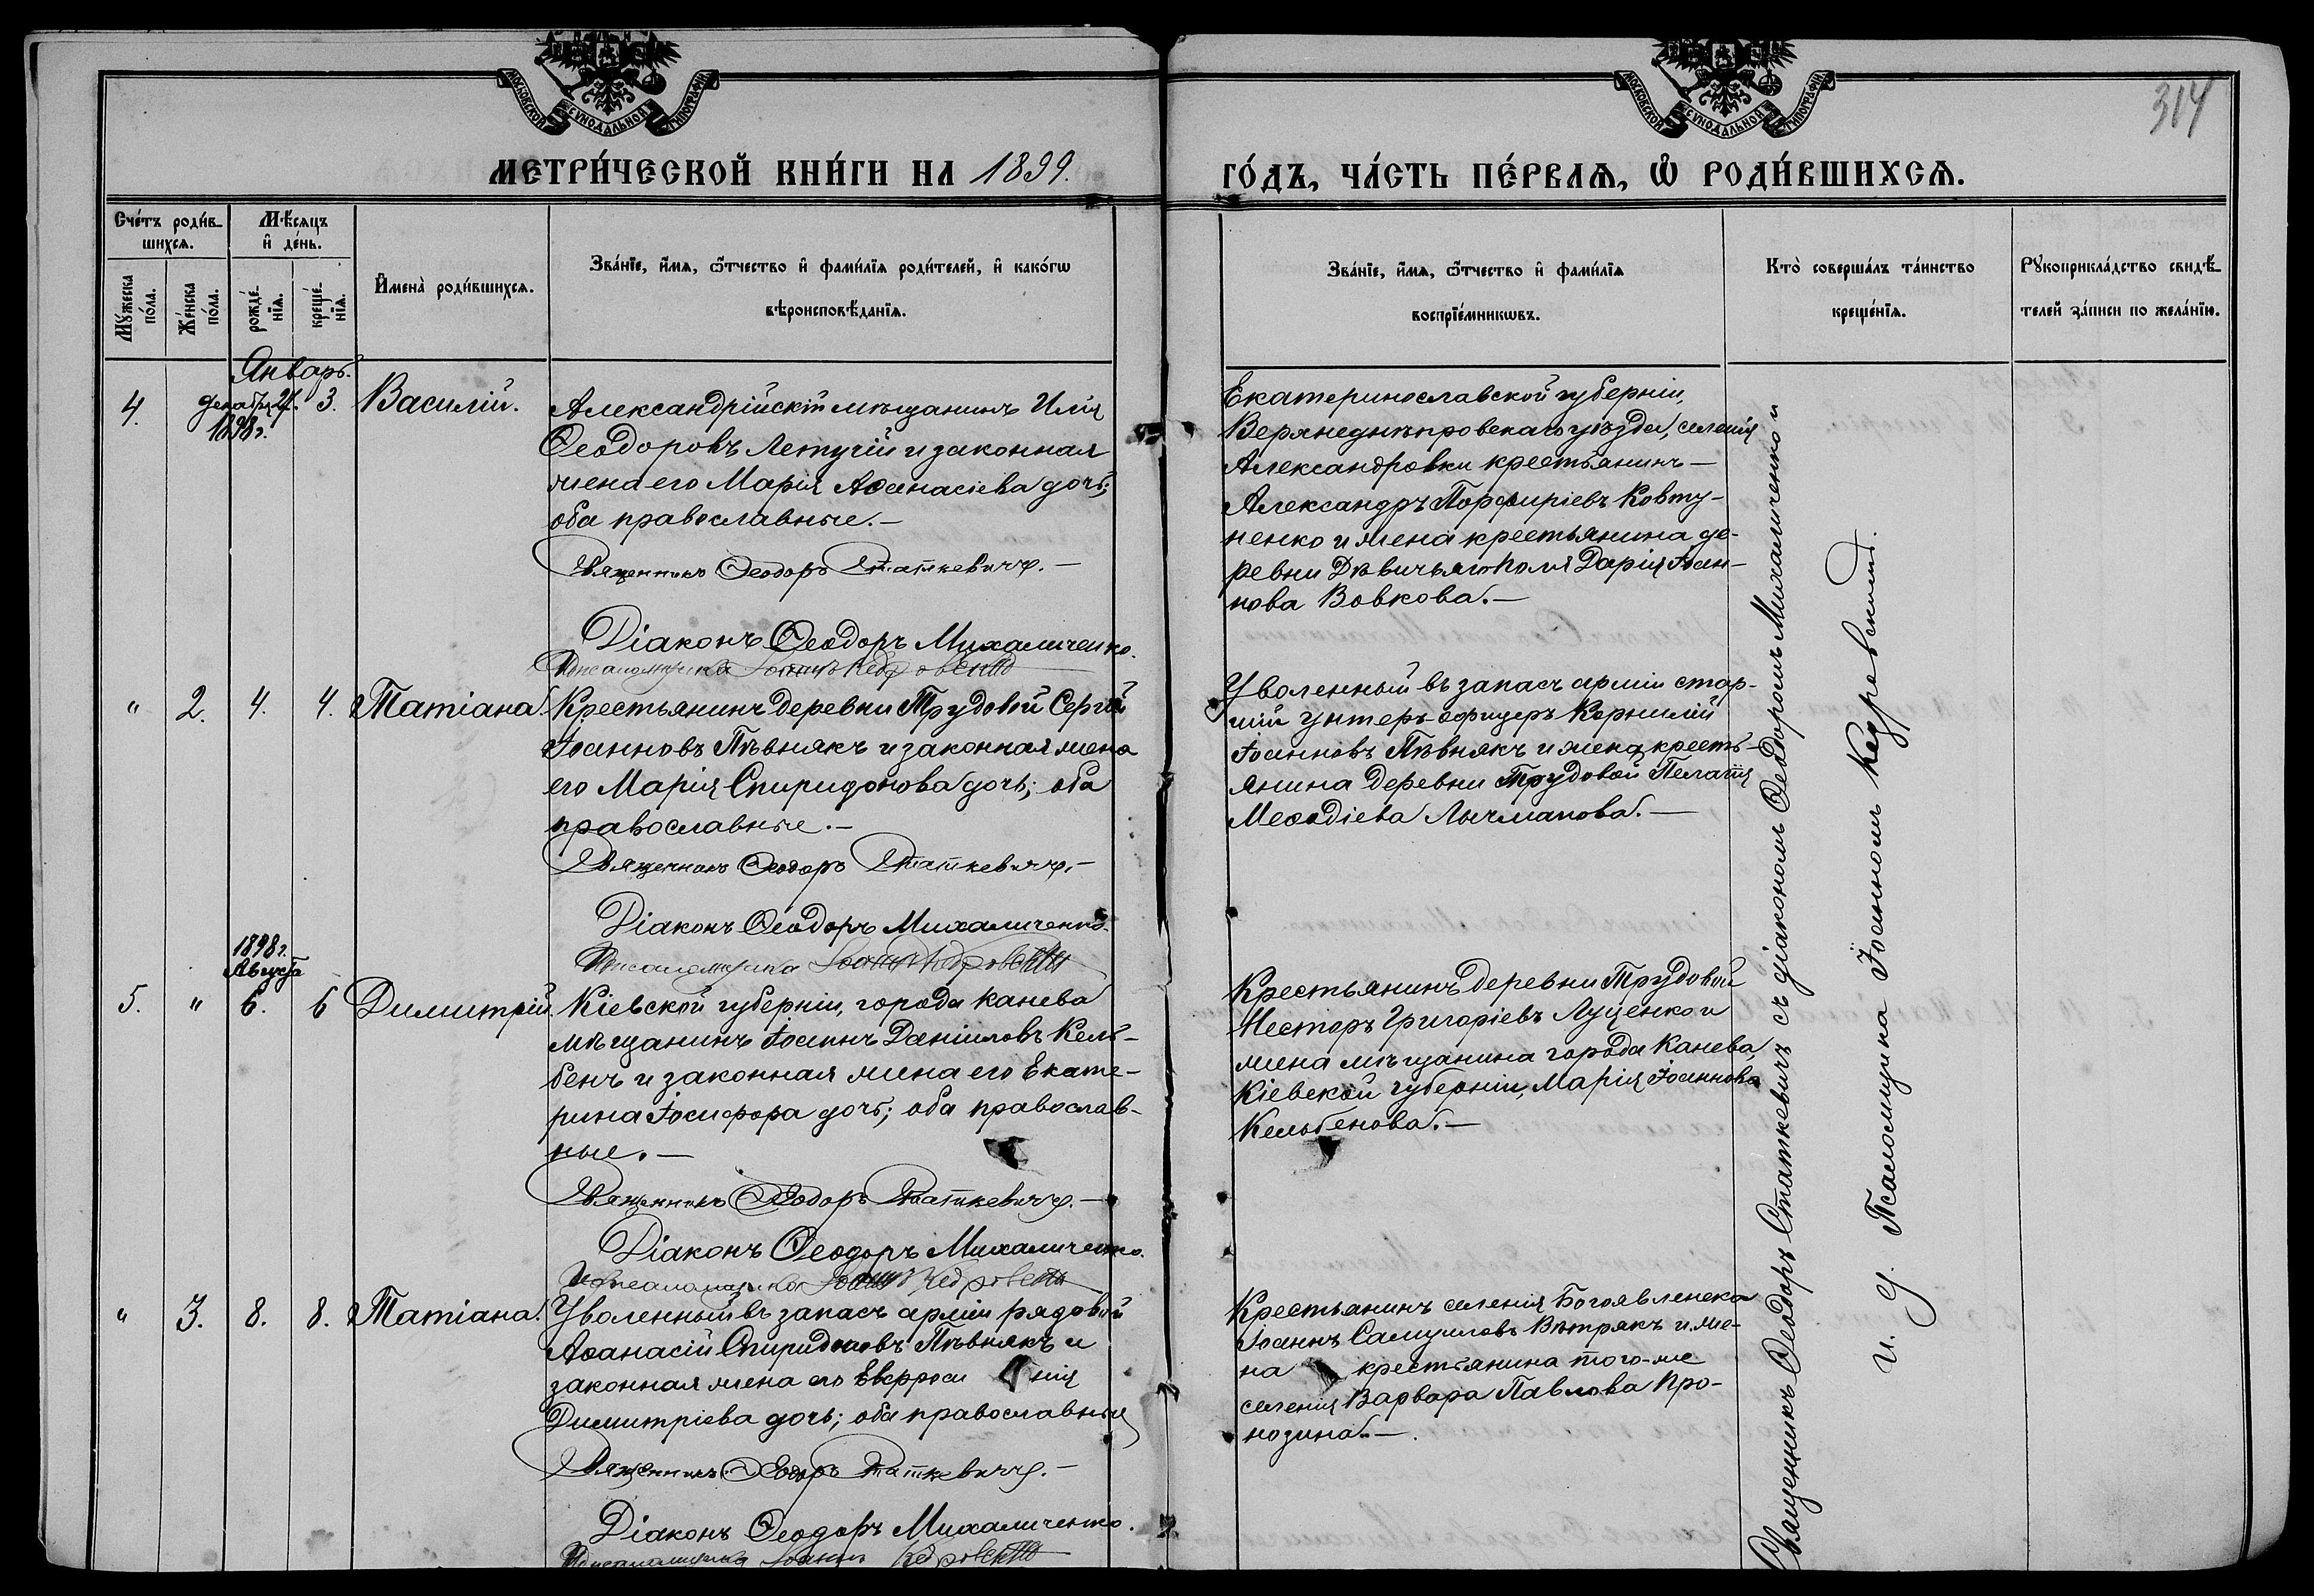 МОСКОВСКОЙ СѴНОДАЛЬНОЙ ТИПОГРАФІИ
МОСКОВСКОЙ СѴНОДАЛЬНОЙ ТИПОГРАФІИ
314
МЕТРИ́ЧЕСКОЙ КНИ́ГИ НА 1899.
ГО́ДЪ, ЧА́СТЬ ПЕ́РВАЯ, Ѽ РОДИ́ВШИХСЯ.
Сче́тъ роди́в-
шихся.
Мѣ́сяцъ
и҆ де́нь.
Мꙋ́жеска
по́ла.
Же́нска
по́ла.
рожде́-
нїя.
креще́-
нїя.
И҆мена̀ роди́вшихся.
Зва́нїе, и҆́мя, ѻ҆́тчество и҆ фами́лїя роди́телей, и҆ како́гѡ
вѣроисповѣ́данїя.
Зва́нїе, и҆́мя, ѻ҆́тчество и҆ фами́лїя
воспрїе́мникѡвъ.
Кто̀ соверша́лъ та́инство
креще́нїя.
Рꙋкоприкла́дство свидѣ́-
телей за́писи по жела́нїю.
Январь.
4.
Декабря 21.
1898 г.
3.
Василій.
Александрійскій мѣщанинъ Илія
Ѳеодоровъ Летучій и законная
жена его Марія Аѳанасіева дочь;
оба православные.—
Священникъ Ѳеодоръ Статкевичъ.—
Діаконъ Ѳеодоръ Михаличенко.
Псаломщика Іоаннъ Кедровскій
Екатеринославской губерніи,
Верхнеднѣпровскаго уѣзда, селенія
Александровки крестьянинъ—
Александръ Порфиріевъ Ковту-
ненко и жена крестьянина де-
ревни Дѣвичьяго поля Дарія Іоан-
нова Вовкова.—
" 2. 4. 4. Татіана.
Крестьянинъ деревни Трудовой Сергій
Іоанновъ Пѣвнякъ и законная жена
его Марія Спиридонова дочь; оба
православные.—
Священникъ Ѳеодоръ Статкевичъ.—
Діаконъ Ѳеодоръ Михаличенко.
Псаломщика Іоаннъ Кедровскій
Уволенный въ запасъ арміи стар-
шій унтеръ-офицеръ Корнилій
Іоанновъ Пѣвнякъ и жена кресть-
янина деревни Трудовой Пелагія
Меѳодіева Лычманова.—
1898 г.
Августа
5. " 6. 6 Димитрій.
Кіевской губерніи, города Канева
мѣщанинъ Іоаннъ Даніиловъ Кель-
бенъ и законная жена его Екате-
рина Іосифова дочь; оба православ-
ные.—
Священникъ Ѳеодоръ Статкевичъ.—
Діаконъ Ѳеодоръ Михаличенко.
Псаломщика Іоаннъ Кедровскій
Крестьянинъ деревни Трудовой
Несторъ Григоріевъ Луценко и
жена мѣщанина города Канева,
Кіевской губерніи, Марія Іоаннова
Кельбенова.—
" 3. 8. 8. Татіана.
Уволенный въ запасъ арміи рядовой
Аѳанасій Спиридоновъ Пѣвнякъ и
законная жена его Евфроси нія
Димитріева дочь; оба православные
Священникъ Ѳеодоръ Статкевичъ.—
Діаконъ Ѳеодоръ Михаличенко.
Псаломщика Іоаннъ Кедровскій
Крестьянинъ селенія Богоявленска
Іоаннъ Самуиловъ Вѣтрякъ и же-
на крестьянина того-же
селенія Варвара Павлова Про-
нозина.—
Священникъ Ѳеодоръ Статкевичъ съ діакономъ Ѳеодоромъ Михаличенко и
и. д. Псаломщика Іоанномъ Кедровскимъ.